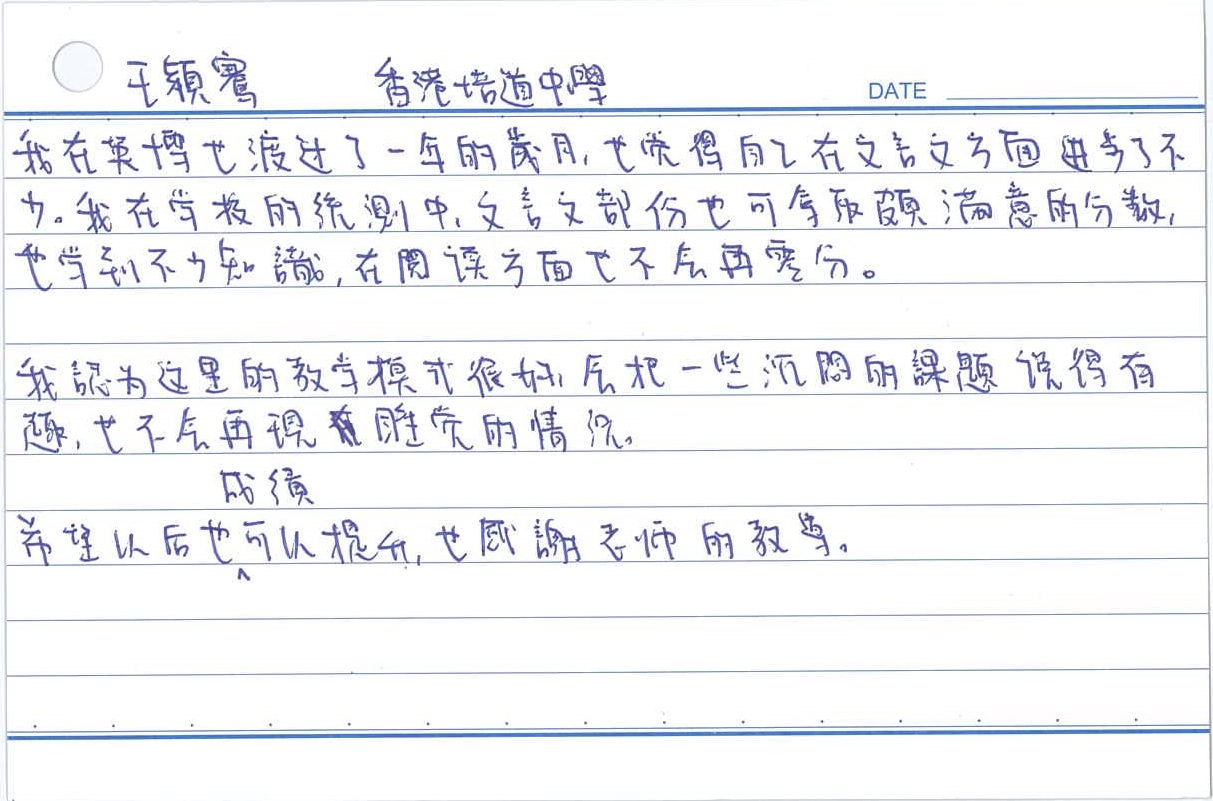 王穎騫 香港培道中學
DATE
我在英博也渡过了一年的歲月,也觉得自己在文言文方面进步了不
少。我在学校的統測中,文言文部份也可拿取頗滿意的分数,
也学到不少知識,在閱读方面也不会再零分。
我認为这里的教学模式很好,会把一些沉悶的課題說得有
趣,也不会再現睡觉的情況。
成績
希望以后也可以提升,也感謝老师的教导。